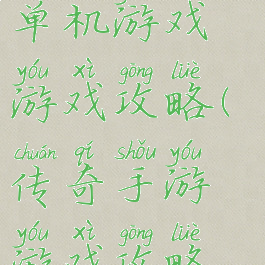 单机游戏
yóu xì gōng lüè
游戏攻略(
chuán qí shǒu yóu
传奇手游
yóu xì gōng lüè
游戏攻略